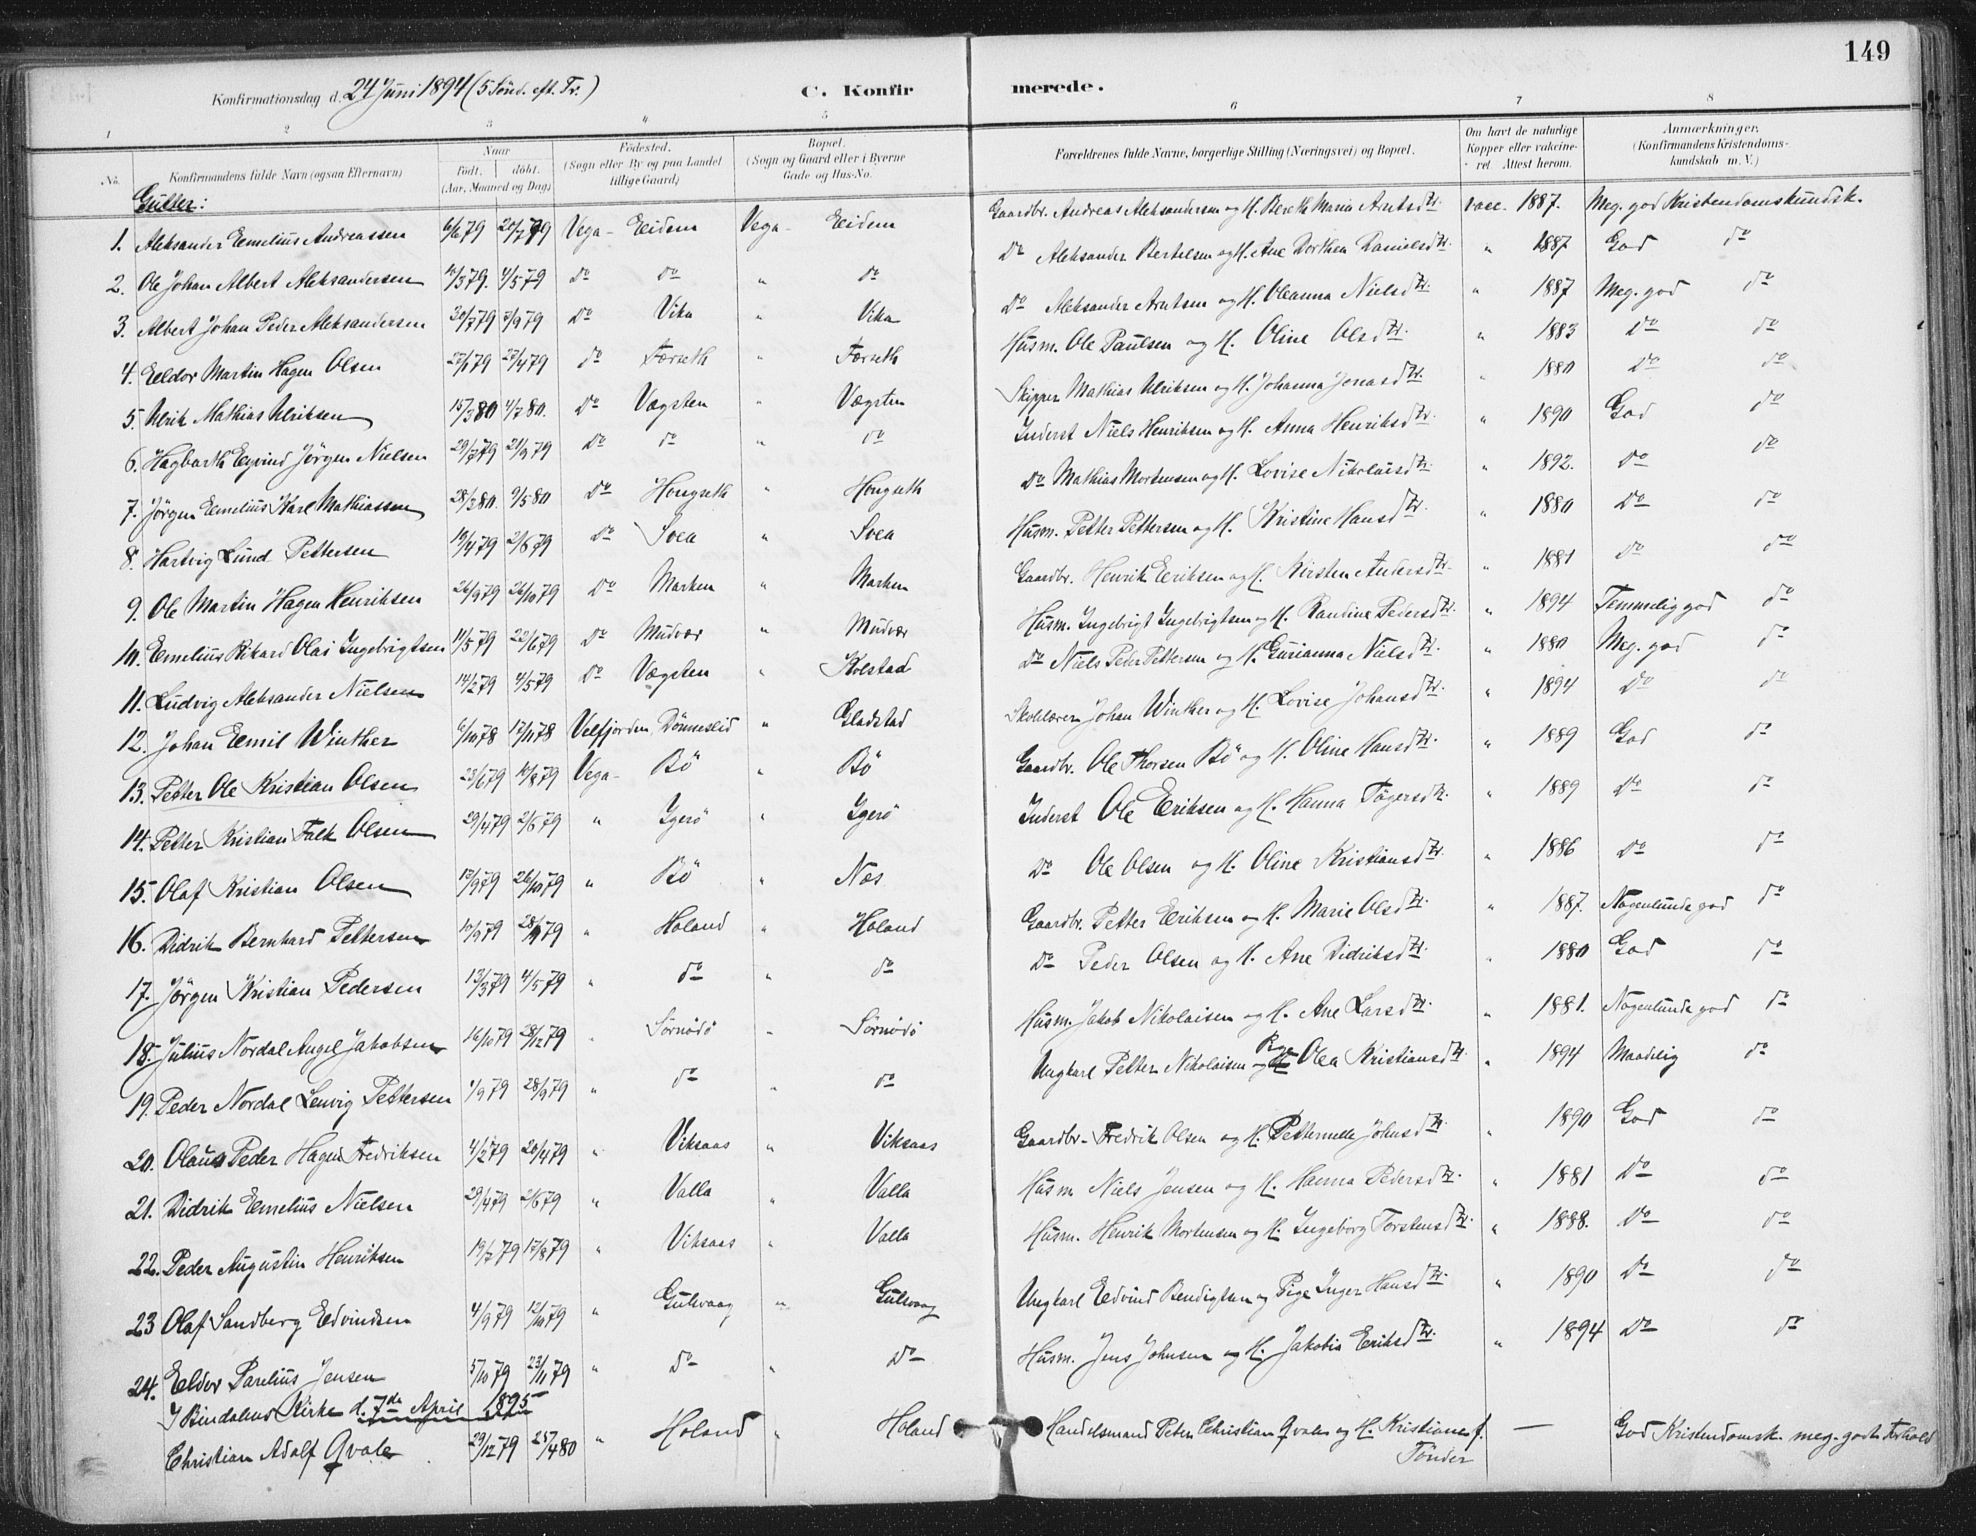 149
Konfirmationsdag d. 24 Juni 1894 (5 Sönd. eft. Tr.) C. Konfirmerede.
1 2 3 4 5 6 7 8
No. Konfirmandens fulde Navn (ogsaa Efternavn) Naar födt. döbt. (Aar, Maaned og Dag) Födested. (Sogn eller By og paa Landet tillige Gaard) Bopæl. (Sogn og Gaard eller i Byerne Gade og Hus-No. Forældrenes fulde Navne, borgerlige Stilling (Næringsvei) og Bopæl. Om havt de naturlige Kopper eller vakcineret. Attest herom. Anmærkninger. (Konfirmandens Kristendomskundskab m. V.)
Gutter:
1. Aleksander Emelius Andreassen 6/6 79 20/7 79 Vega - Eidem Vega - Eidem Gaardbr. Andreas Aleksandersen og H. Bereth Maria Arntsdtr. vacc. 1887. Meg. god Kristendomskundsk.
2. Ole Johan Albert Aleksandersen 10/3 79. 4/5 79 do do " do Do Aleksander Bertelsen og H. Ane Dorthea Danielsdtr. " 1887 God do
3. Albert Johan Peder Aleksandersen 30/7 79 3/9 79 Do Vika " Vika Do Aleksander Arntsen og H. Oleanna Nielsdtr. " 1887 Meg. god do
4. Eldor Martin Hagen Olsen 27/1 79 27/4 79 do Færseth " Færseth Husm. Ole Paulsen og H. Oline Olsdtr. " 1883 Do do
5. Ulrik Mathias Ulriksen 15/3 80 4/7 80. Do Vægsten " Vægsten Skipper Mathias Ulriksen og H. Johanna Jonasdtr. " 1880 Do do
6. Hagbarth Eyvind Jörgen Nielsen 29/7 79 21/9 79 Do do " do Inderst Niels Henriksen og H. Anna Henriksdtr. " 1890 God do
7. Jörgen Emelius Karl Mathiassen 28/2 80. 9/5 80 Do Hongseth " Hongseth Do Mathias Mortensen og H. Lovise Nikolaisdtr. " 1892. Do do
8. Hartvig Lund Pettersen 19/4 79 2/6 79 do Svea " Svea Husm. Petter Pettersen og H. Kristine Hansdtr. " 1880 Do do
9. Ole Martin Hagen Henriksen 26/9 79 26/10 79 Do Marken " Marken Gaardbr. Henrik Eriksen og H. Kirsten Andersdtr. " 1881 Do do
10. Emelius Rikard Olai Ingebrigtsen 11/5 79 22/6 79 Do Mudvær " Mudvær Husm. Ingebrigt Ingebrigtsen og H. Randine Pedersdtr. " 1894 Temmelig god do
11. Ludvig Aleksander Nielsen 14/2 79 4/5 79 Do Vægsten " Kolstad Do Niels Peder Pettersen og H. Gurianna Nielsdtr. " 1880 Meg. god do
12. Johan Emil Winther 6/10 78 17/11 78 Velfjorden Dönneslid " Gladstad Skolelærer Johan Winther og H. Lovise Johansdtr. " 1894 Do do
13. Petter Ole Kristian Olsen 23/6 79 10/8 79 Vega - Bö " Bö Gaardbr. Ole Thorsen Bö og H. Oline Hansdtr. " 1889 God do
14. Petter Kristian Falk Olsen 29/4 79 2/6 79 " Igerö " Igerö Inderst Ole Eriksen og H. Hanna Tögersdtr. " 1889 Do do
15. Olaf Kristian Olsen 13/9 79 26/10 79 " Bö " Næs Do Ole Olsen og H. Oline Kristiansdtr. " 1886 Do do
16. Didrik Bernhard Pettersen 10/9 79 28/9 79 " Holand " Holand Gaardbr. Petter Eriksen og H. Marie Olsdtr. " 1887. Nogenlunde god do
17. Jörgen Kristian Pedersen 13/3 79 4/5 79 " do " do Do Peder Olsen og H. Ane Didriksdtr. " 1880 God do
18. Julius Nordal Angel Jakobsen 16/10 79 28/12 79 " Sörnödö " Sörnödö Husm. Jakob Nikolaisen og H. Ane Larsdtr. " 1881. Nogenlunde god do
19. Peder Nordal Lenvig Pettersen 4/9 79 28/9 79 " do " do Ungkarl Petter Nikolaisen og Pige Olea Kristiansdtr. " 1894 Maadelig do
20. Olaus Peder Hagen Fredriksen 4/2 79 20/4 79 " Viksaas " Viksaas Gaardbr. Fredrik Olsen og H. Petternelle Johnsdtr. " 1890 God do
21. Didrik Emelius Nielsen 29/4 79 2/6 79 " Valla " Valla Husm. Niels Jensen og H. Hanna Pedersdtr. " 1881 Do do
22. Peder Augustin Henriksen 19/7 79 17/8 79 " Viksaas " Valla Husm. Henrik Mortensen og H. Ingeborg Torstensdtr. " 1888. Do do
23 Olaf Sandberg Edvindsen 4/9 79 12/10 79 " Gulsvaag " Gulsvaag Ungkarl Edvind Bendigtsen og Pige Inger Hansdtr. " 1890 Do do
24. Eldor Parelius Jensen 5/10 79 23/11 79 " Do " Do Husm. Jens Johnsen og H. Jakobia Eriksdtr. " 1894 Do do
I Bindalens Kirke d. 7de April 1895
Christian Adolf Qvale 29/12 79 25/4 80 " Holand " Holand Handelsmand Peter Christian Qvale og H. Kristiane f. Tönder — God Kristendomsk. meg. godt Forhold